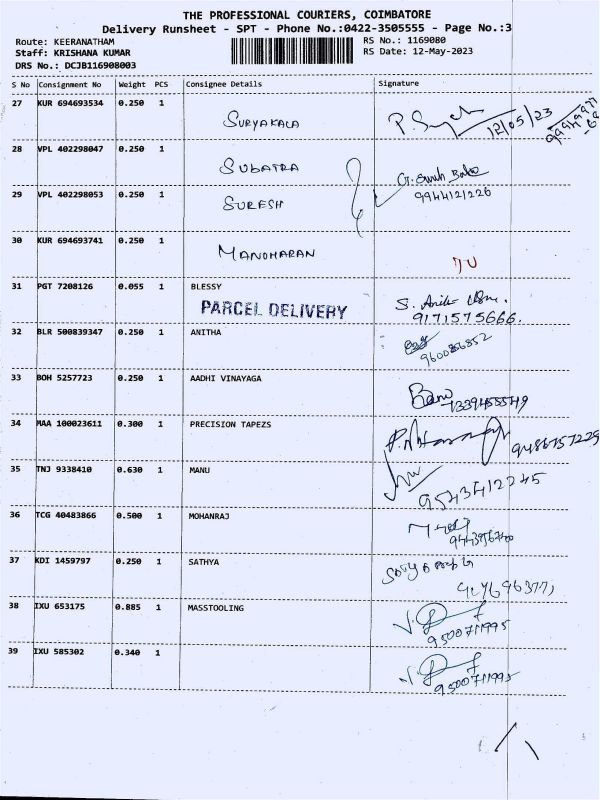 THE PROFESSIONAL COURIERS, COIMBATORE
Delivery Runsheet - SPT - Phone No.:0422-3505555 - Page No.:3
Route: KEERANATHAM RS No.: 1169080
Staff: KRISHANA KUMAR RS Date: 12-May-2023
DRS No.: DCJB116908003
S No Consignment No Weight PCS Consignee Details Signature
27 KUR 694693534 0.250 1 SURYAKALA 12/05/23
28 VPL 402298047 0.250 1 SUBATRA
29 VPL 402298053 0.250 1 SURESH 9944121226
30 KUR 694693741 0.250 1 MANOHARAN
31 PGT 7208126 0.055 1 BLESSY
PARCEL DELIVERY 9171575666.
32 BLR 500839347 0.250 1 ANITHA
33 BOH 5257723 0.250 1 AADHI VINAYAGA
34 MAA 100023611 0.300 1 PRECISION TAPEZS
35 TNJ 9338410 0.630 1 MANU
9543412245
36 TCG 40483866 0.500 1 MOHANRAJ
37 KDI 1459797 0.250 1 SATHYA
38 IXU 653175 0.885 1 MASSTOOLING
9500711995
39 IXU 585302 0.340 1
9500711995